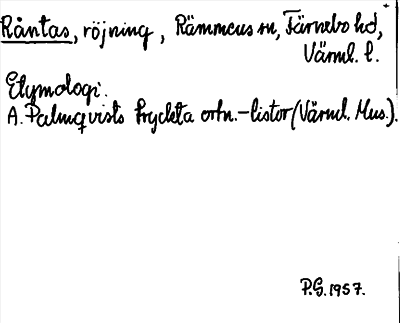 Råntas, röjning, Rämmeus sn, Färnebo hd,
Värml. l.
Etymologi.
A. Palmqvists tryckta ortn.-listor (Värml. Mus.).
P.G. 1957.